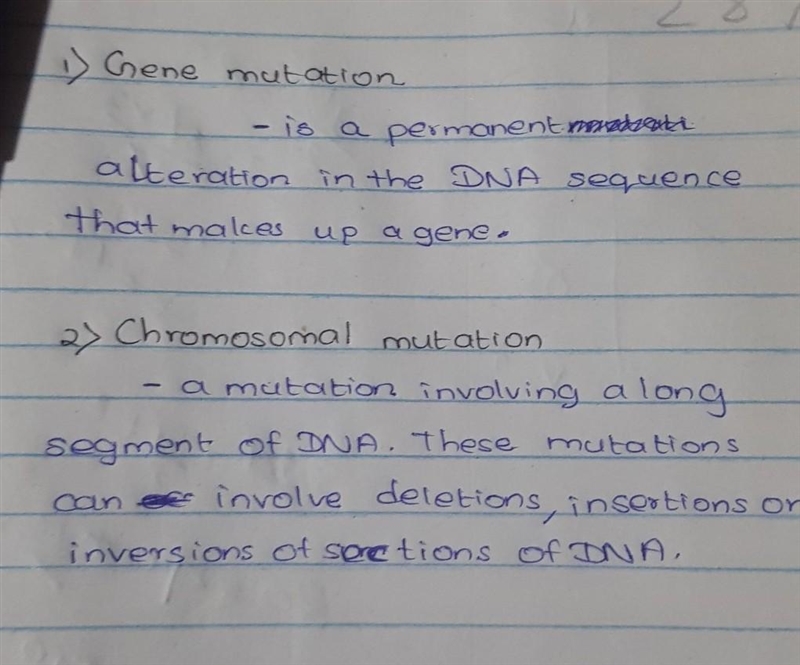 1) Gene mutation
- is a permanent
alteration in the DNA sequence
that makes up a gene.
2) Chromosomal mutation
- a mutation involving a long
segment of DNA. These mutations
can involve deletions, insertions or
inversions of sections of DNA.